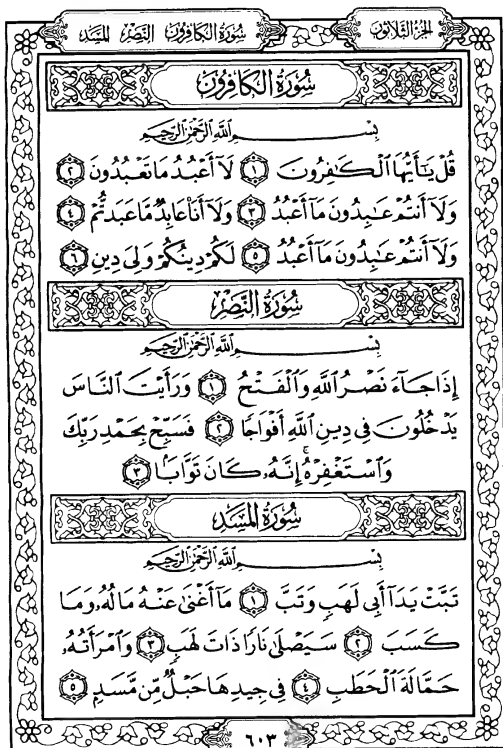 الجزء الثلاثون
سورة الكافرون النصر المسد
سُورَةُ الْكَافِرُونَ
بِسْمِ اللَّهِ الرَّحْمَٰنِ الرَّحِيمِ
قُلْ يَـٰٓأَيُّهَا ٱلْكَـٰفِرُونَ ١ لَآ أَعْبُدُ مَا تَعْبُدُونَ ٢
وَلَآ أَنتُمْ عَـٰبِدُونَ مَآ أَعْبُدُ ٣ وَلَآ أَنَا۠ عَابِدٌ مَّا عَبَدتُّمْ ٤
وَلَآ أَنتُمْ عَـٰبِدُونَ مَآ أَعْبُدُ ٥ لَكُمْ دِينُكُمْ وَلِىَ دِينِ ٦
سُورَةُ النَّصْرِ
بِسْمِ اللَّهِ الرَّحْمَٰنِ الرَّحِيمِ
إِذَا جَآءَ نَصْرُ ٱللَّهِ وَٱلْفَتْحُ ١ وَرَأَيْتَ ٱلنَّاسَ
يَدْخُلُونَ فِى دِينِ ٱللَّهِ أَفْوَاجًا ٢ فَسَبِّحْ بِحَمْدِ رَبِّكَ
وَٱسْتَغْفِرْهُ ۚ إِنَّهُۥ كَانَ تَوَّابًۢا ٣
سُورَةُ الْمَسَدِ
بِسْمِ اللَّهِ الرَّحْمَٰنِ الرَّحِيمِ
تَبَّتْ يَدَآ أَبِى لَهَبٍ وَتَبَّ ١ مَآ أَغْنَىٰ عَنْهُ مَالُهُۥ وَمَا
كَسَبَ ٢ سَيَصْلَىٰ نَارًا ذَاتَ لَهَبٍ ٣ وَٱمْرَأَتُهُۥ
حَمَّالَةَ ٱلْحَطَبِ ٤ فِى جِيدِهَا حَبْلٌ مِّن مَّسَدٍۭ ٥
٦٠٣